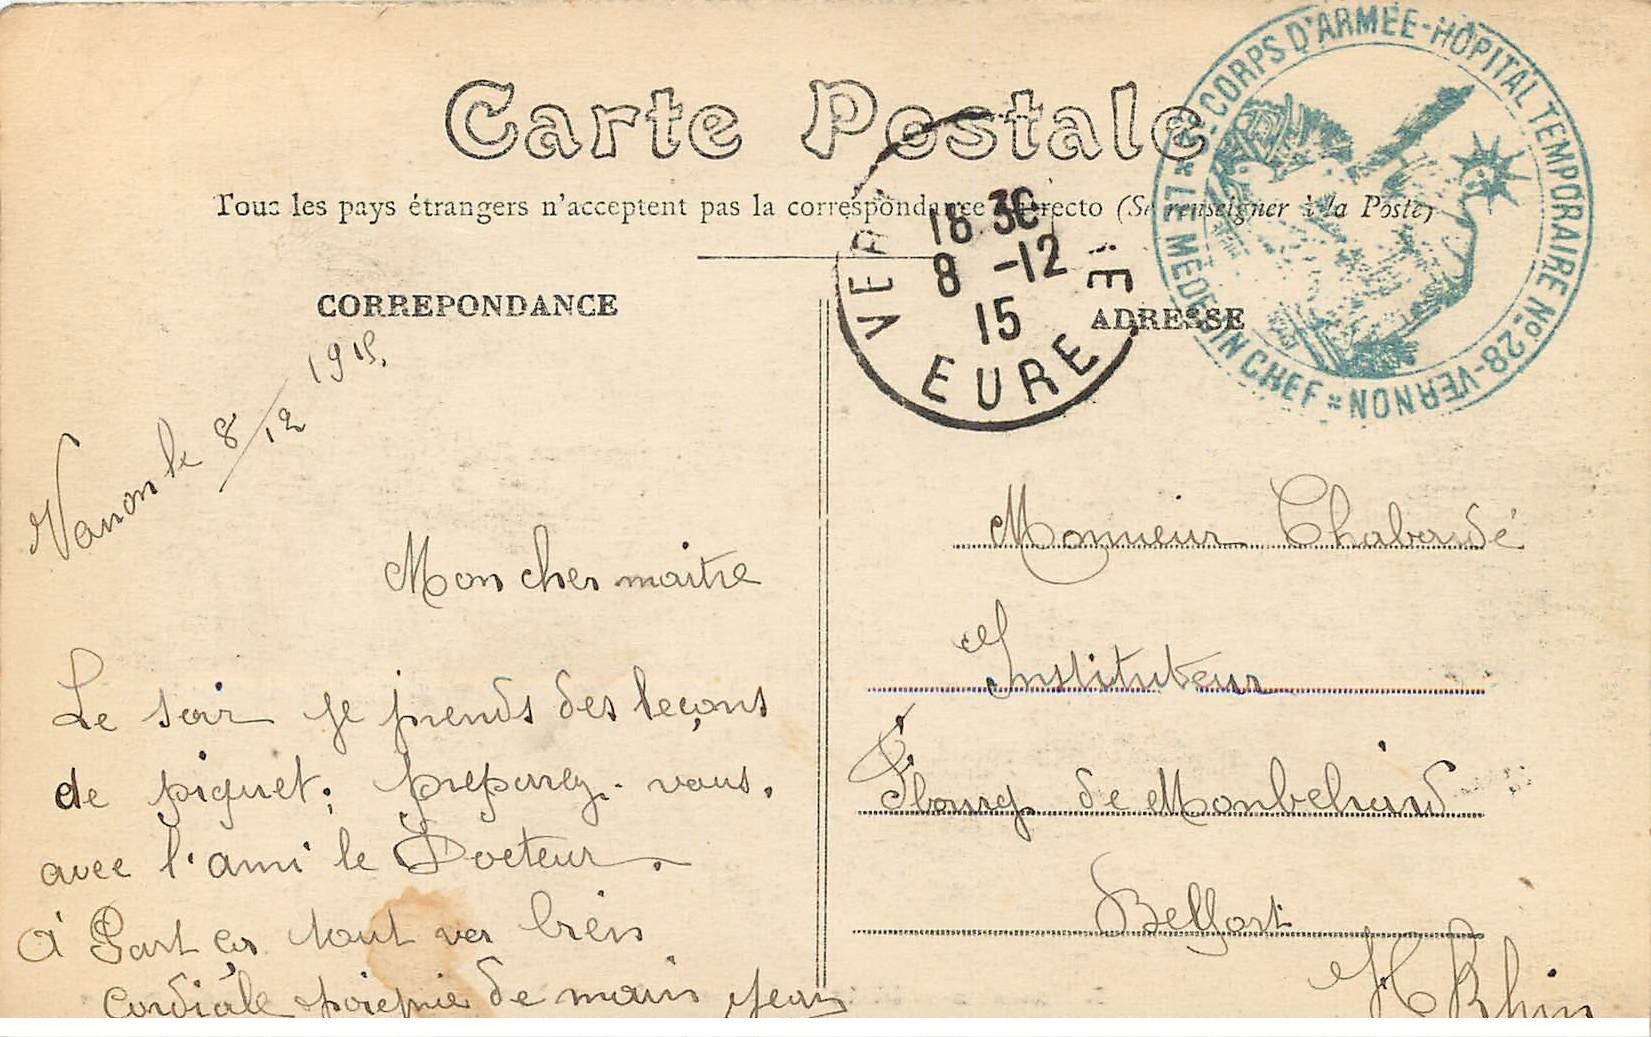 Carte Postale
Tous les pays étrangers n'acceptent pas la correspondance recto (Se renseigner à la Poste)
CORREPONDANCE
ADRESSE
CORPS D'ARMÉE - HÔPITAL TEMPORAIRE Nº 28 - VERNON
LE MÉDECIN CHEF
18 30
8 -12
15
EURE
Vernon le 8/12 1915.
Mon cher maitre
Le soir je prends des leçons
de piquet; preparez-vous,
avec l'ami le Docteur.
À Part ça tout va bien
Cordiale poignée de main Jean
Monsieur Chabaudé
Instituteur
Fbourg de Monbeliard
Belfort
Ht Rhin